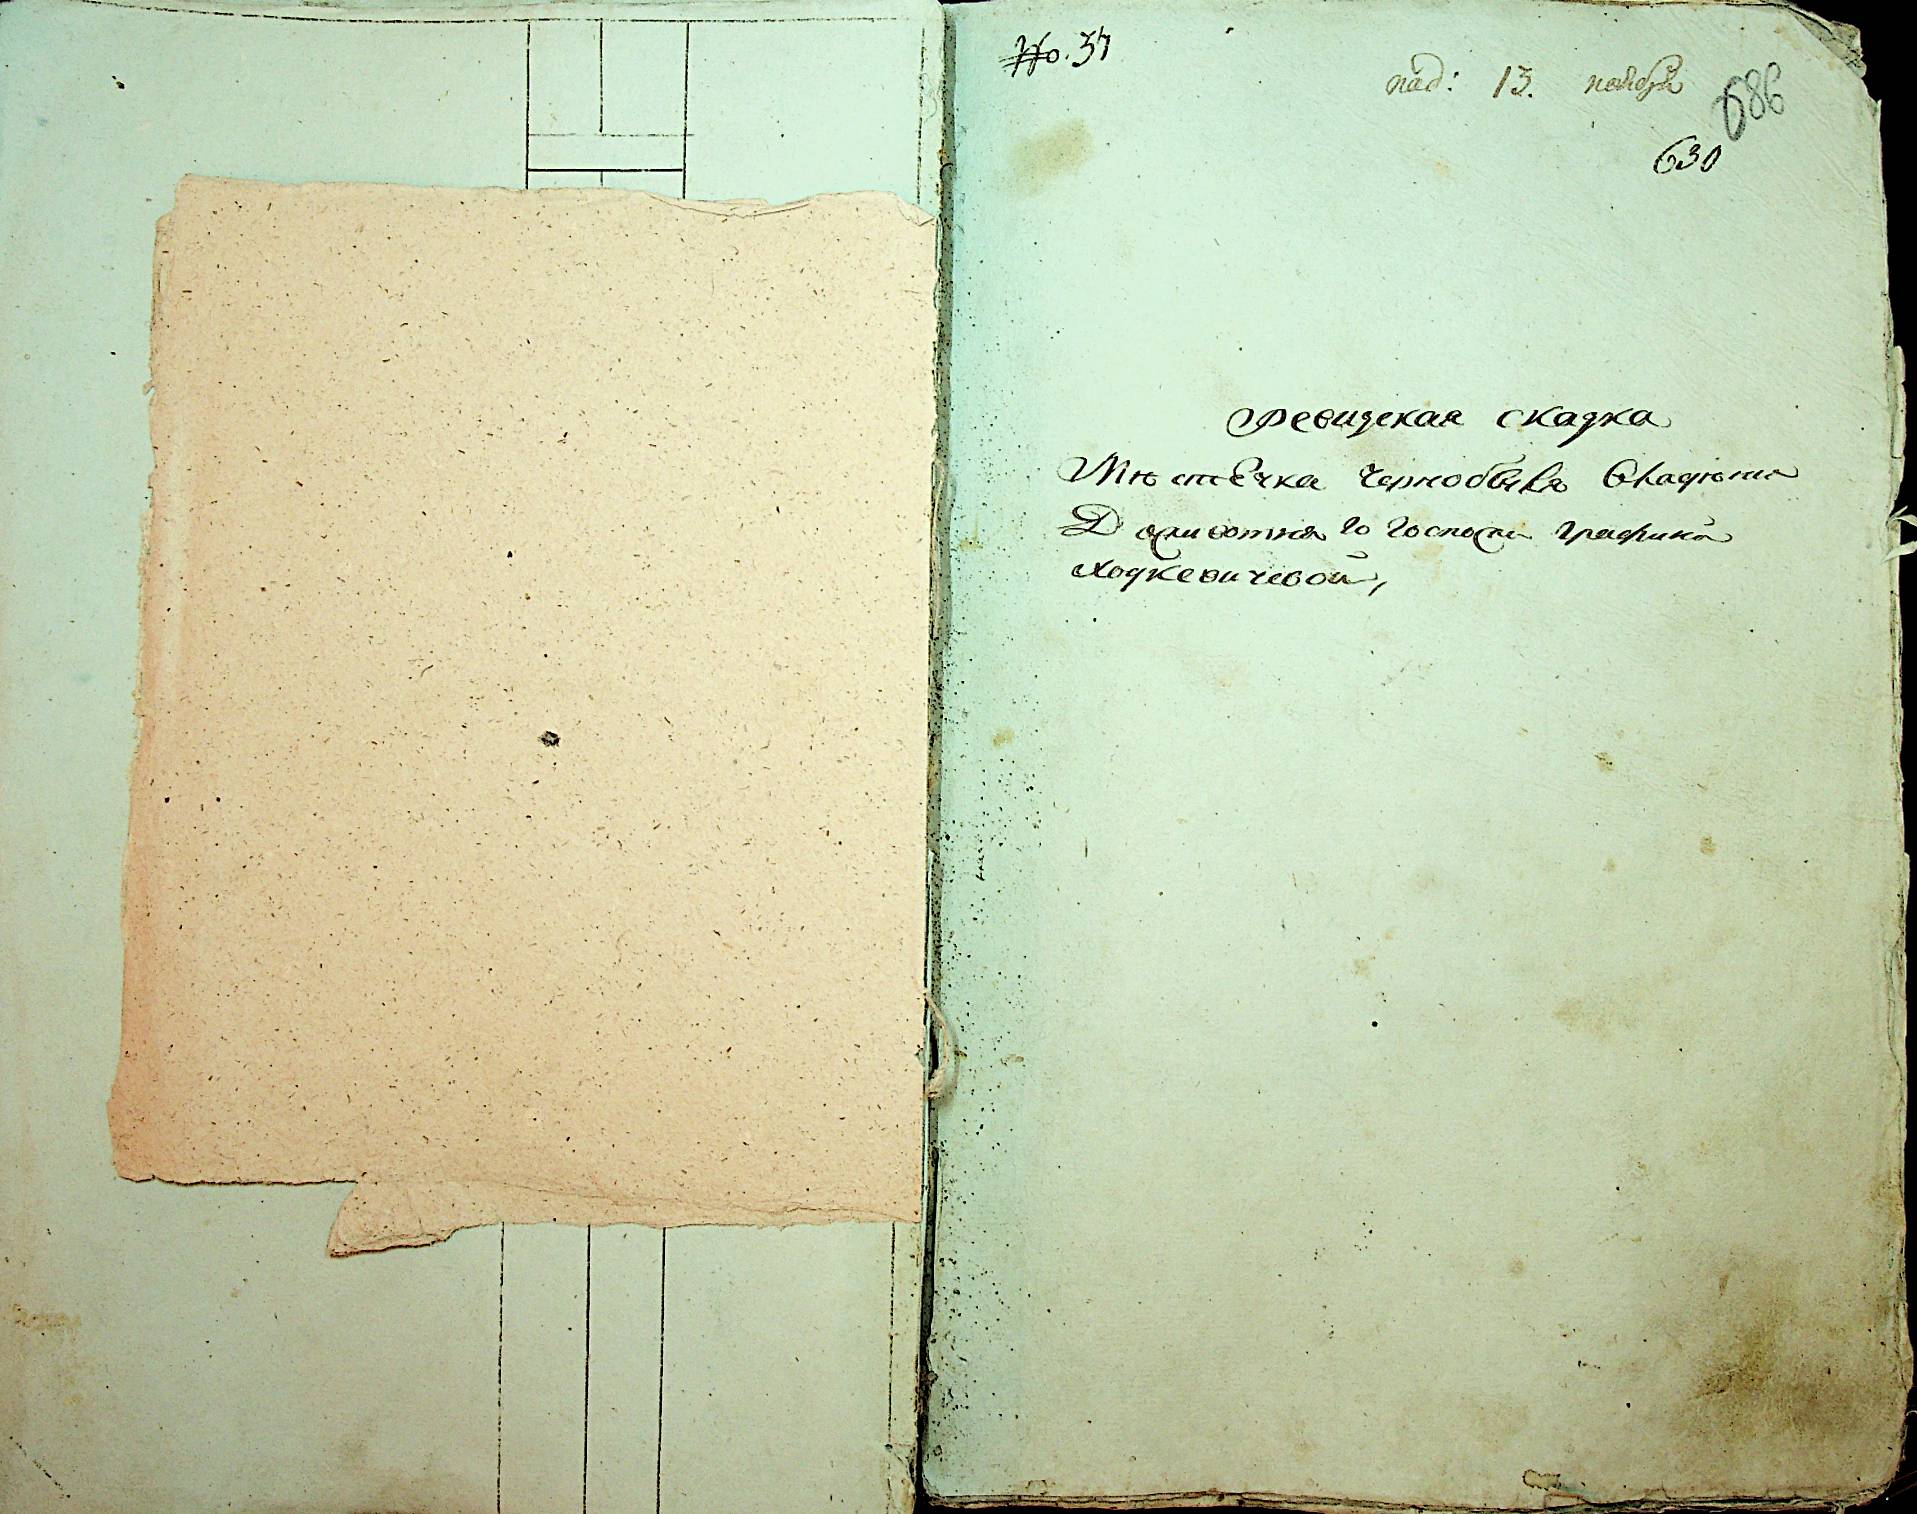 No. 37
под: 13. ноября
686
630
Ревизская сказка
Мѣстечка Чернобыля Владѣния
Доживотняго Госпожи Графини
Ходкевичевой,